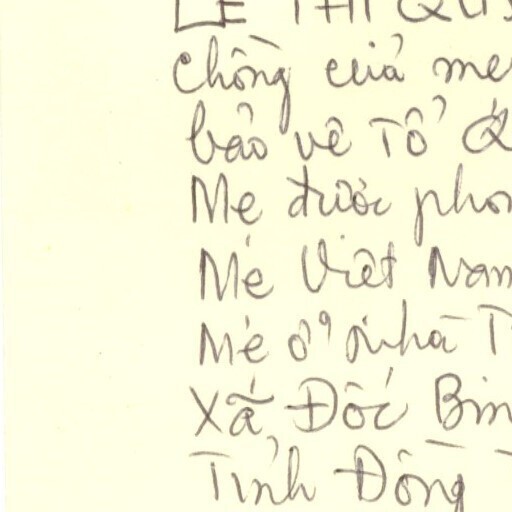 LÊ THỊ QUY
Chồng của mẹ
bảo vệ Tổ Q
Mẹ được phon
Mẹ Việt Nam
Mẹ ở nhà T
Xã, Đốc Bin
Tỉnh Đồng T